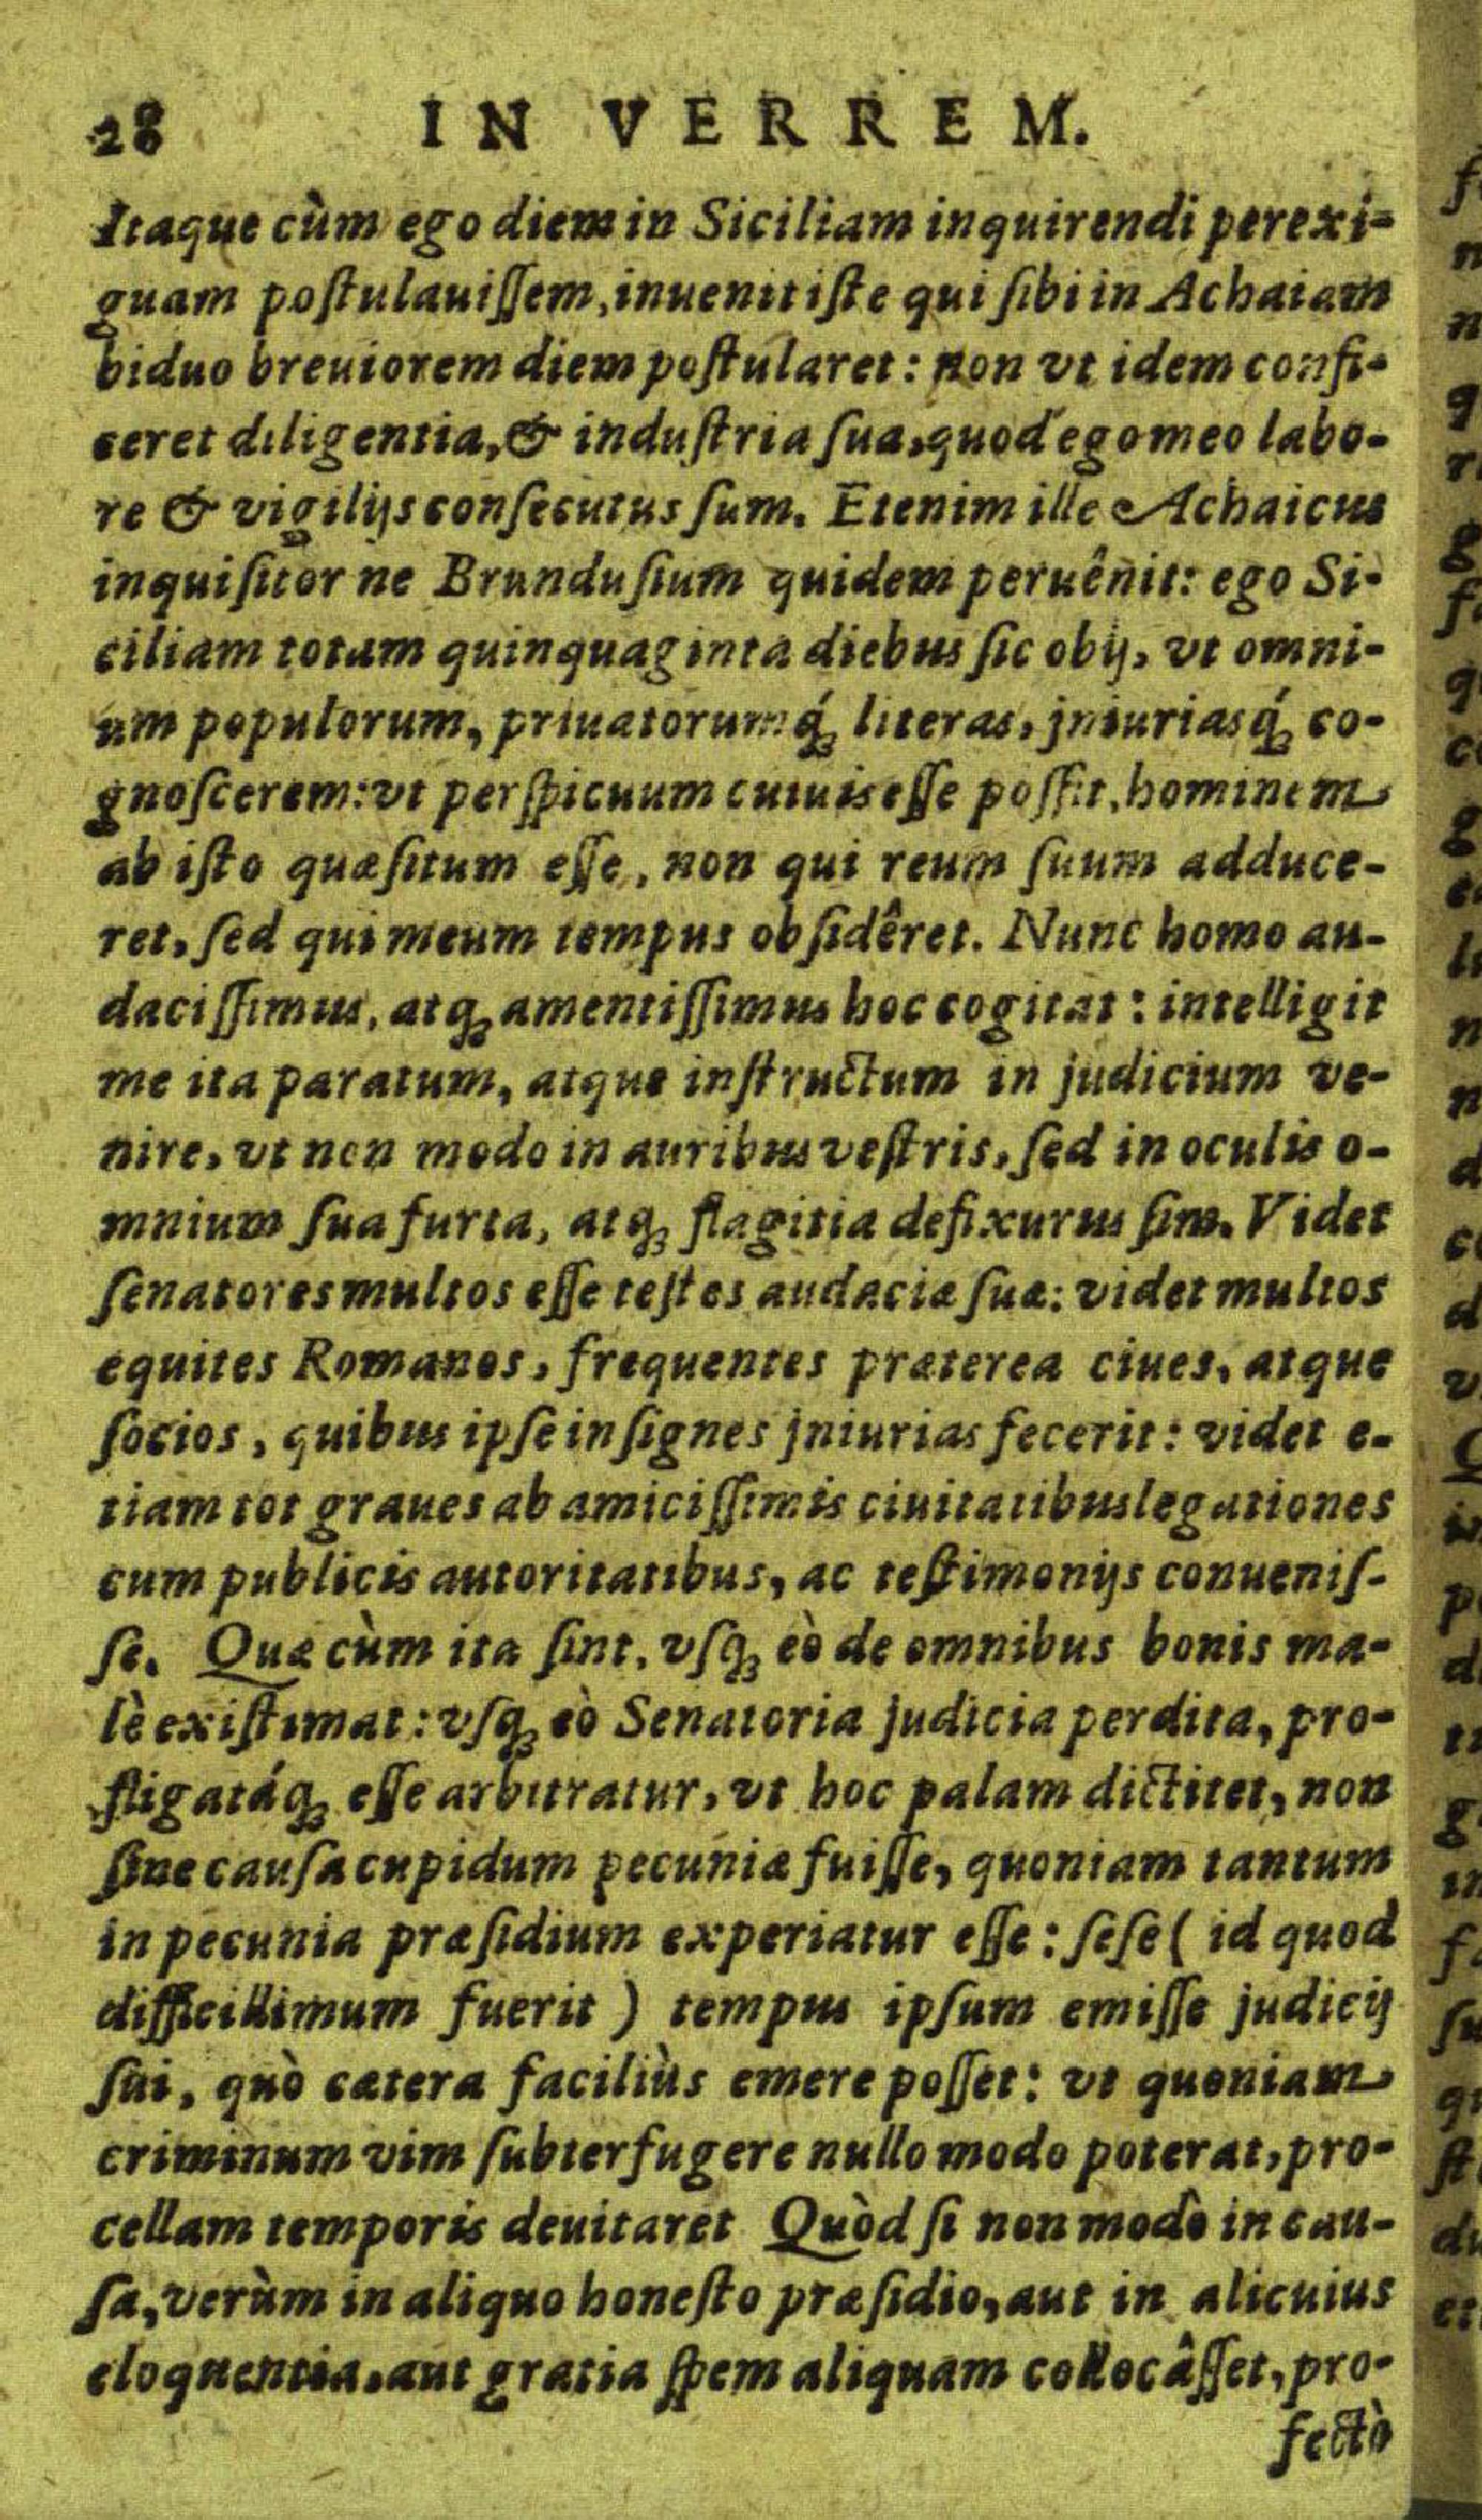 28 IN VERREM.
Itaque cùm ego diem in Siciliam inquirendi perexi-
guam poſtulauiſſem, inuenit iſte qui ſibi in Achaiam
biduo breuiorem diem poſtularet: non vt idem confi-
ceret diligentia, & induſtria ſua, quod ego meo labo-
re & vigilijs conſecutus ſum. Etenim ille Achaicus
inquiſitor ne Brunduſium quidem peruênit: ego Si-
ciliam totam quinquaginta diebus ſic obij, vt omni-
um populorum, priuatorumq́ꝫ literas, jniuriasq́ꝫ co-
gnoſcerem: vt perſpicuum cuiuis eſſe poſſit, hominem
ab iſto quæſitum eſſe, non qui reum ſuum adduce-
ret, ſed qui meum tempus obſidêret. Nunc homo au-
daciſſimus, atqꝫ amentiſſimus hoc cogitat: intelligit
me ita paratum, atque inſtructum in judicium ve-
nire, vt non modo in auribus veſtris, ſed in oculis o-
mnium ſua furta, atqꝫ flagitia defixurus ſim. Videt
ſenatores multos eſſe teſtes audaciæ ſuæ: videt multos
equites Romanos, frequentes præterea ciues, atque
ſocios, quibus ipſe inſignes jniurias fecerit: videt e-
tiam tot graues ab amiciſſimis ciuitatibus legationes
cum publicis autoritatibus, ac teſtimonijs conueniſ-
ſe. Quæ cùm ita ſint, vſqꝫ eò de omnibus bonis ma-
lè exiſtimat: vſqꝫ eò Senatoria judicia perdita, pro-
fligatáqꝫ eſſe arbitratur, vt hoc palam dictitet, non
ſine cauſa cupidum pecuniæ fuiſſe, quoniam tantum
in pecunia præſidium experiatur eſſe: ſeſe ( id quod
difficillimum fuerit ) tempus ipſum emiſſe judicij
ſui, quò cætera faciliùs emere poſſet: vt quoniam
criminum vim ſubterfugere nullo modo poterat, pro-
cellam temporis deuitaret Quòd ſi non modò in cau-
ſa, verùm in aliquo honeſto præſidio, aut in alicuius
eloquentia, aut gratia ſpem aliquam collocâſſet, pro-
fectò